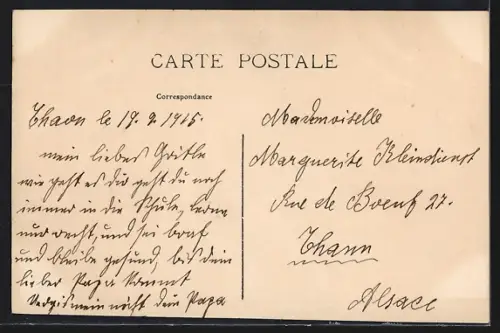 CARTE POSTALE
Correspondance
Thaon le 19. 2 1915.
mein liebes Gritle
wie geht es dir geht du noch
immer in die Schule, lerne
nur recht, und sei braf
und bleibe gesund, bis dein
lieber Papa kommt
Vergis mein nicht dein Papa
Mademoiselle
Marguerite Kleindienst
Rue de Boeuf 27.
Thann
Alsace